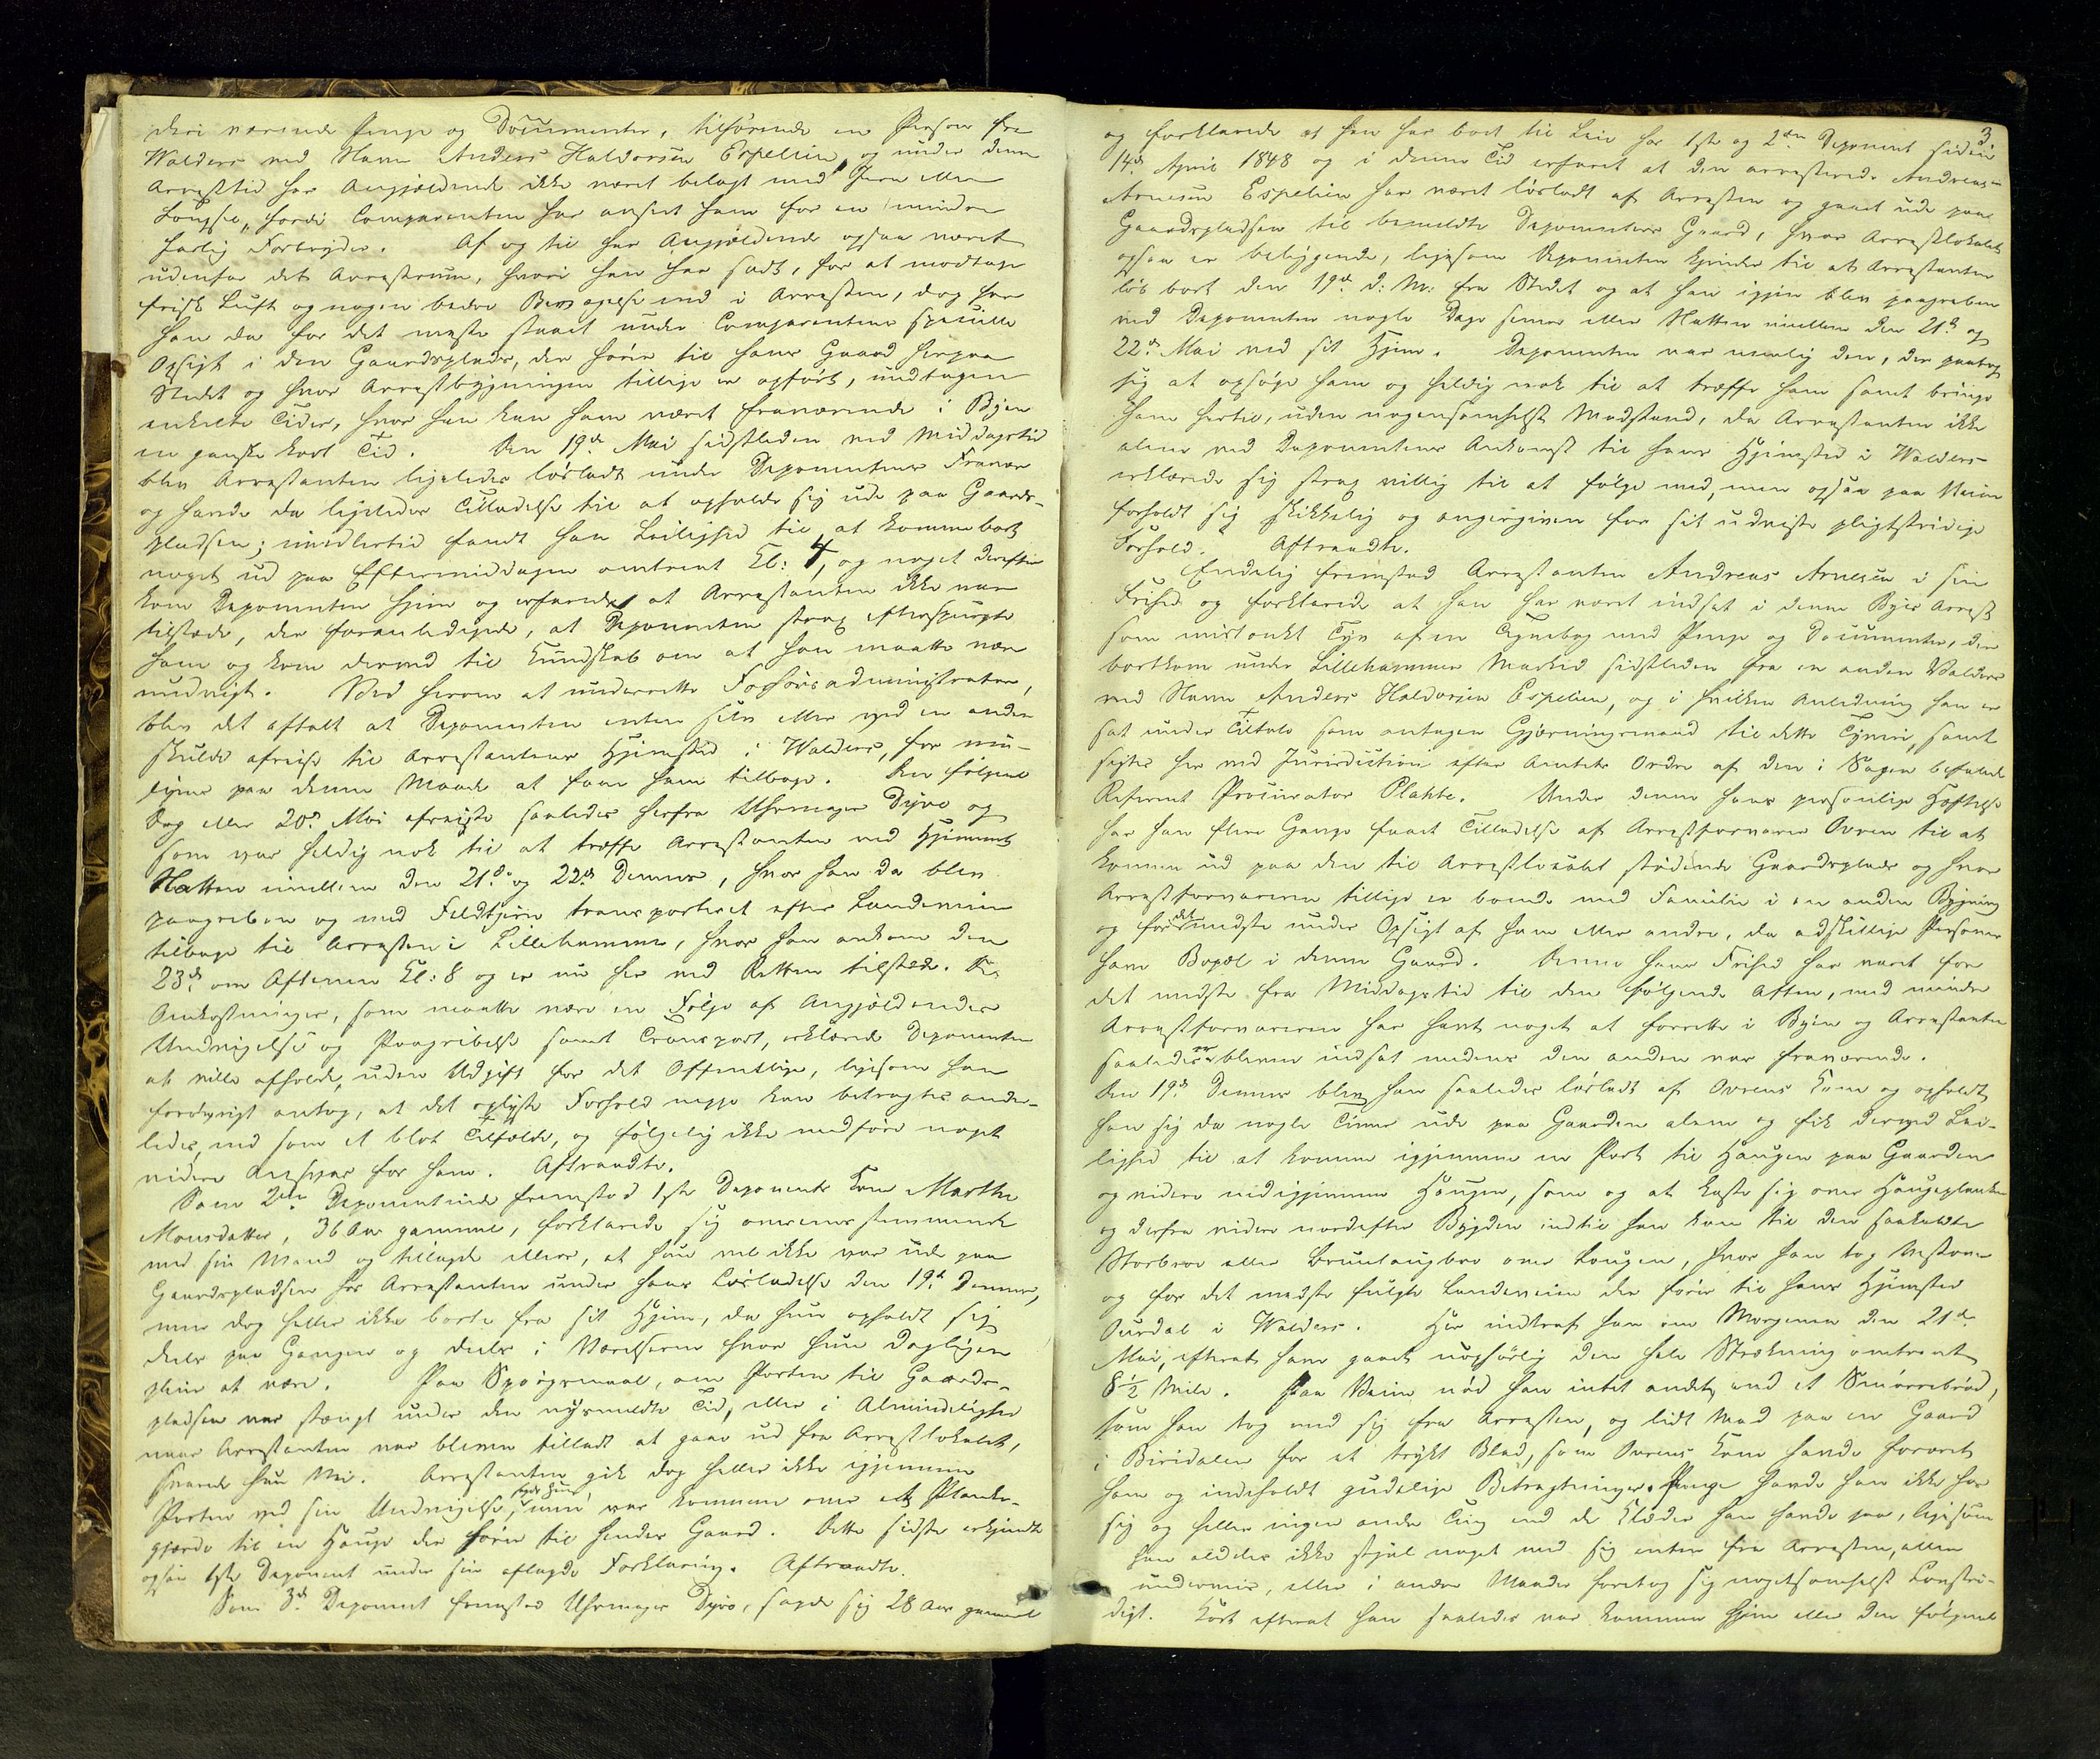 deri værende Penge og Documenter, tilhørende en Person fra
Walders ved Navn Anders Haldorsen Espelien, og under denne
Arresttid har Angjældende ikke været belagt med Jern eller
Bolt, fordi Comparenten har anseet ham for en mindre
farlig Forbryder. Af og til har Angjældende ogsaa været
udenfor det Arrestrum, hvori han har sadt, for at modtage
frisk Luft og nogen bedre Bevægelse end i Arresten, dog har
han da for det meste staaet under Comparentens specielle
Opsigt i den Gaardsplads, der hører til hans Gaard herpaa
Stedet og hvor Arrestbygningen tillige er opført, undtagen
enkelte Tider, hvor han kan have været fraværende i Byen
en ganske kort Tid. Den 19de Mai sidstleden ved Middagstid
blev Arrestanten ligeledes løsladt under Deponentens Fravær
og havde da ligeledes Tilladelse til at opholde sig ude paa Gaards-
pladsen; imidlertid fandt han Leilighed til at komme bort
noget ud paa Eftermiddagen omtrent Kl: 4, og noget derefter
kom Deponenten hjem og erfarede at Arrestanten ikke var
tilstæde, der foranledigede, at Deponenten strax efterspurgte
ham og kom derved til Kundskab om at han maatte være
undvigt. Ved herom at underrette Forhørsadministrator,
blev det aftalt at Deponenten enten selv eller ved en anden
skulde afreise til Arrestantens Hjemsted i Walders, for mu-
ligens paa denne Maade at faae ham tilbage. Den følgende
Dag eller 20de Mai afreiste saaledes herfra Uhrmager Dyre og
som var heldig nok til at træffe Arrestanten ved Hjemmet
Natten imellem den 21de og 22de Dennes, hvor han da blev
paagreben og med Feldtjern transporteret efter Landeveien
tilbage til Arresten i Lillehammer, hvor han ankom den
23de om Aftenen Kl: 8 og er nu her ved Retten tilstæde. De
Omkostninger, som maatte være en Følge af Angjældendes
Undvigelse og Paagribelse samt Transport, erklærede Deponenten
at ville afholde, uden Udgift for det Offentlige, ligesom han
forøvrigt antog, at det oplyste Forhold neppe kan betragtes ander-
ledes, end som et blot Tilfælde, og følgelig ikke medføre noget
videre Ansvar for ham. Aftraadte.
Som 2den Deponentinde fremstod 1ste Deponents Kone Marthe
Monsdatter, 36 Aar gammel, forklarede sig overensstemmende
med sin Mand og tillagde ellers, at hun vel ikke var ude paa
Gaardspladsen hos Arrestanten under hans Løsladelse den 19de Dennes,
men dog heller ikke borte fra sit Hjem, da hun opholdt sig
deels paa Gangen og deels i Værelserne hvor hun dagligen
pleier at være. Paa Spørgsmaal, om Porten til Gaards-
pladsen var stængt under den nysmeldte Tid, eller i Almindelighed
naar Arrestanten var bleven tilladt at gaae ud fra Arrestlokalet,
svarede hun Nei. Arrestanten gik dog heller ikke igjennem
Porten ved sin Undvigelse, sagde hun, men var kommen over et Planke-
gjærde til en Hauge der hører til hendes Gaard. Dette sidste erkjendte
ogsaa 1ste Deponent under sin aflagde Forklaring. Aftraadte.
Som 3de Deponent fremstod Uhrmager Dyre, sagde sig 28 Aar gammel
3
og forklarede at han har boet til Leie hos 1ste og 2den Deponent siden
14de April 1848 og i denne Tid erfaret at den arresterede Andreas
Arnesen Espelien har været løsladt af Arresten og gaaet ude paa
Gaardspladsen til bemeldte Deponenters Gaard, hvor Arrestlokalet
ogsaa er beliggende, ligesom Deponenten kjender til at Arrestanten
løb bort den 19de d: M: fra Stedet og at han igjen blev paagreben
ved Deponenten nogle Dage senere eller Natten imellem den 21de og
22de Mai ved sit Hjem. Deponenten var nemlig den, der paatog
sig at opsøge ham og heldig nok til at træffe ham samt bringe
ham hertil, uden nogensomhelst Modstand, da Arrestanten ikke
alene ved Deponentens Ankomst til hans Hjemsted i Walders
erklærede sig strax villig til at følge med, men ogsaa paa Veien
forholdt sig skikkelig og angergiven for sit udviste pligtstridige
Forhold. Aftraadte.
Endelig fremstod Arrestanten Andreas Arnesen i sin
Frihed og forklarede at han har været indsat i denne Byes Arrest
som mistænkt Tyv af en Tegnebog med Penge og Documenter, der
bortkom under Lillehammer Marked sidstleden fra en anden Valders
ved Navn Anders Haldorsen Espelien, og i hvilken Anledning han er
sat under Tiltale som antagen Gjerningsmand til dette Tyveri, samt
sigtes her ved Jurisdiction efter Amtets Ordre af den i Sagen befalede
Referent Procurator Plahte. Under denne hans personlige Hæftelse
har han flere Gange faaet Tilladelse af Arrestforvarer Ovren til at
komme ud paa den til Arrestlokalet stødende Gaardsplads og hvor
Arrestforvareren tillige er boende med Familie i en anden Bygning
og for det meste under Opsigt af ham eller andre, da adskillige Personer
have Bopæl i denne Gaard. Denne hans Frihed har varet for
det meste fra Middagstid til den følgende Aften, med mindre
Arrestforvareren har havt noget at forrette i Byen og Arrestanten
saaledes er bleven indsat medens den anden var fraværende.
Den 19de Dennes blev han saaledes løsladt af Ovrens Kone og opholdt
han sig da nogle Timer ude paa Gaarden alene og fik derved Lei-
lighed til at komme igjennem en Port til Haugen paa Gaarden
og videre ud igjennem Haugen, som og at kaste sig over Haugeplanken
og derfra videre nordefter Bygden indtil han kom til den saakaldte
Storbroe eller Brunlaugbro over Lougen, hvor han tog Vestover
og for det meste fulgte Landeveien der fører til hans Hjemsted
Aurdal i Walders. Her indtraf han om Morgenen den 21de
Mai, efterat have gaaet uophørlig den hele Strækning omtrent
8 1/2 Mile. Paa Veien nød han intet andet, end et Smørrebrød,
som han tog med sig fra Arresten, og lidt Mad paa en Gaard
i Biridalen for et trykt Blad, som Ovrens Kone havde foræret
ham og indeholdt gudelige Betragtninger. Penge havde han ikke hos
sig og heller ingen andre Ting end de Klæder han havde paa, ligesom
han aldeles ikke stjal noget med sig enten fra Arresten, eller
underveis, eller i andre Maader foretog sig nogetsomhelst Lovstri-
digt. Kort efterat han saaledes var kommen hjem eller den følgende